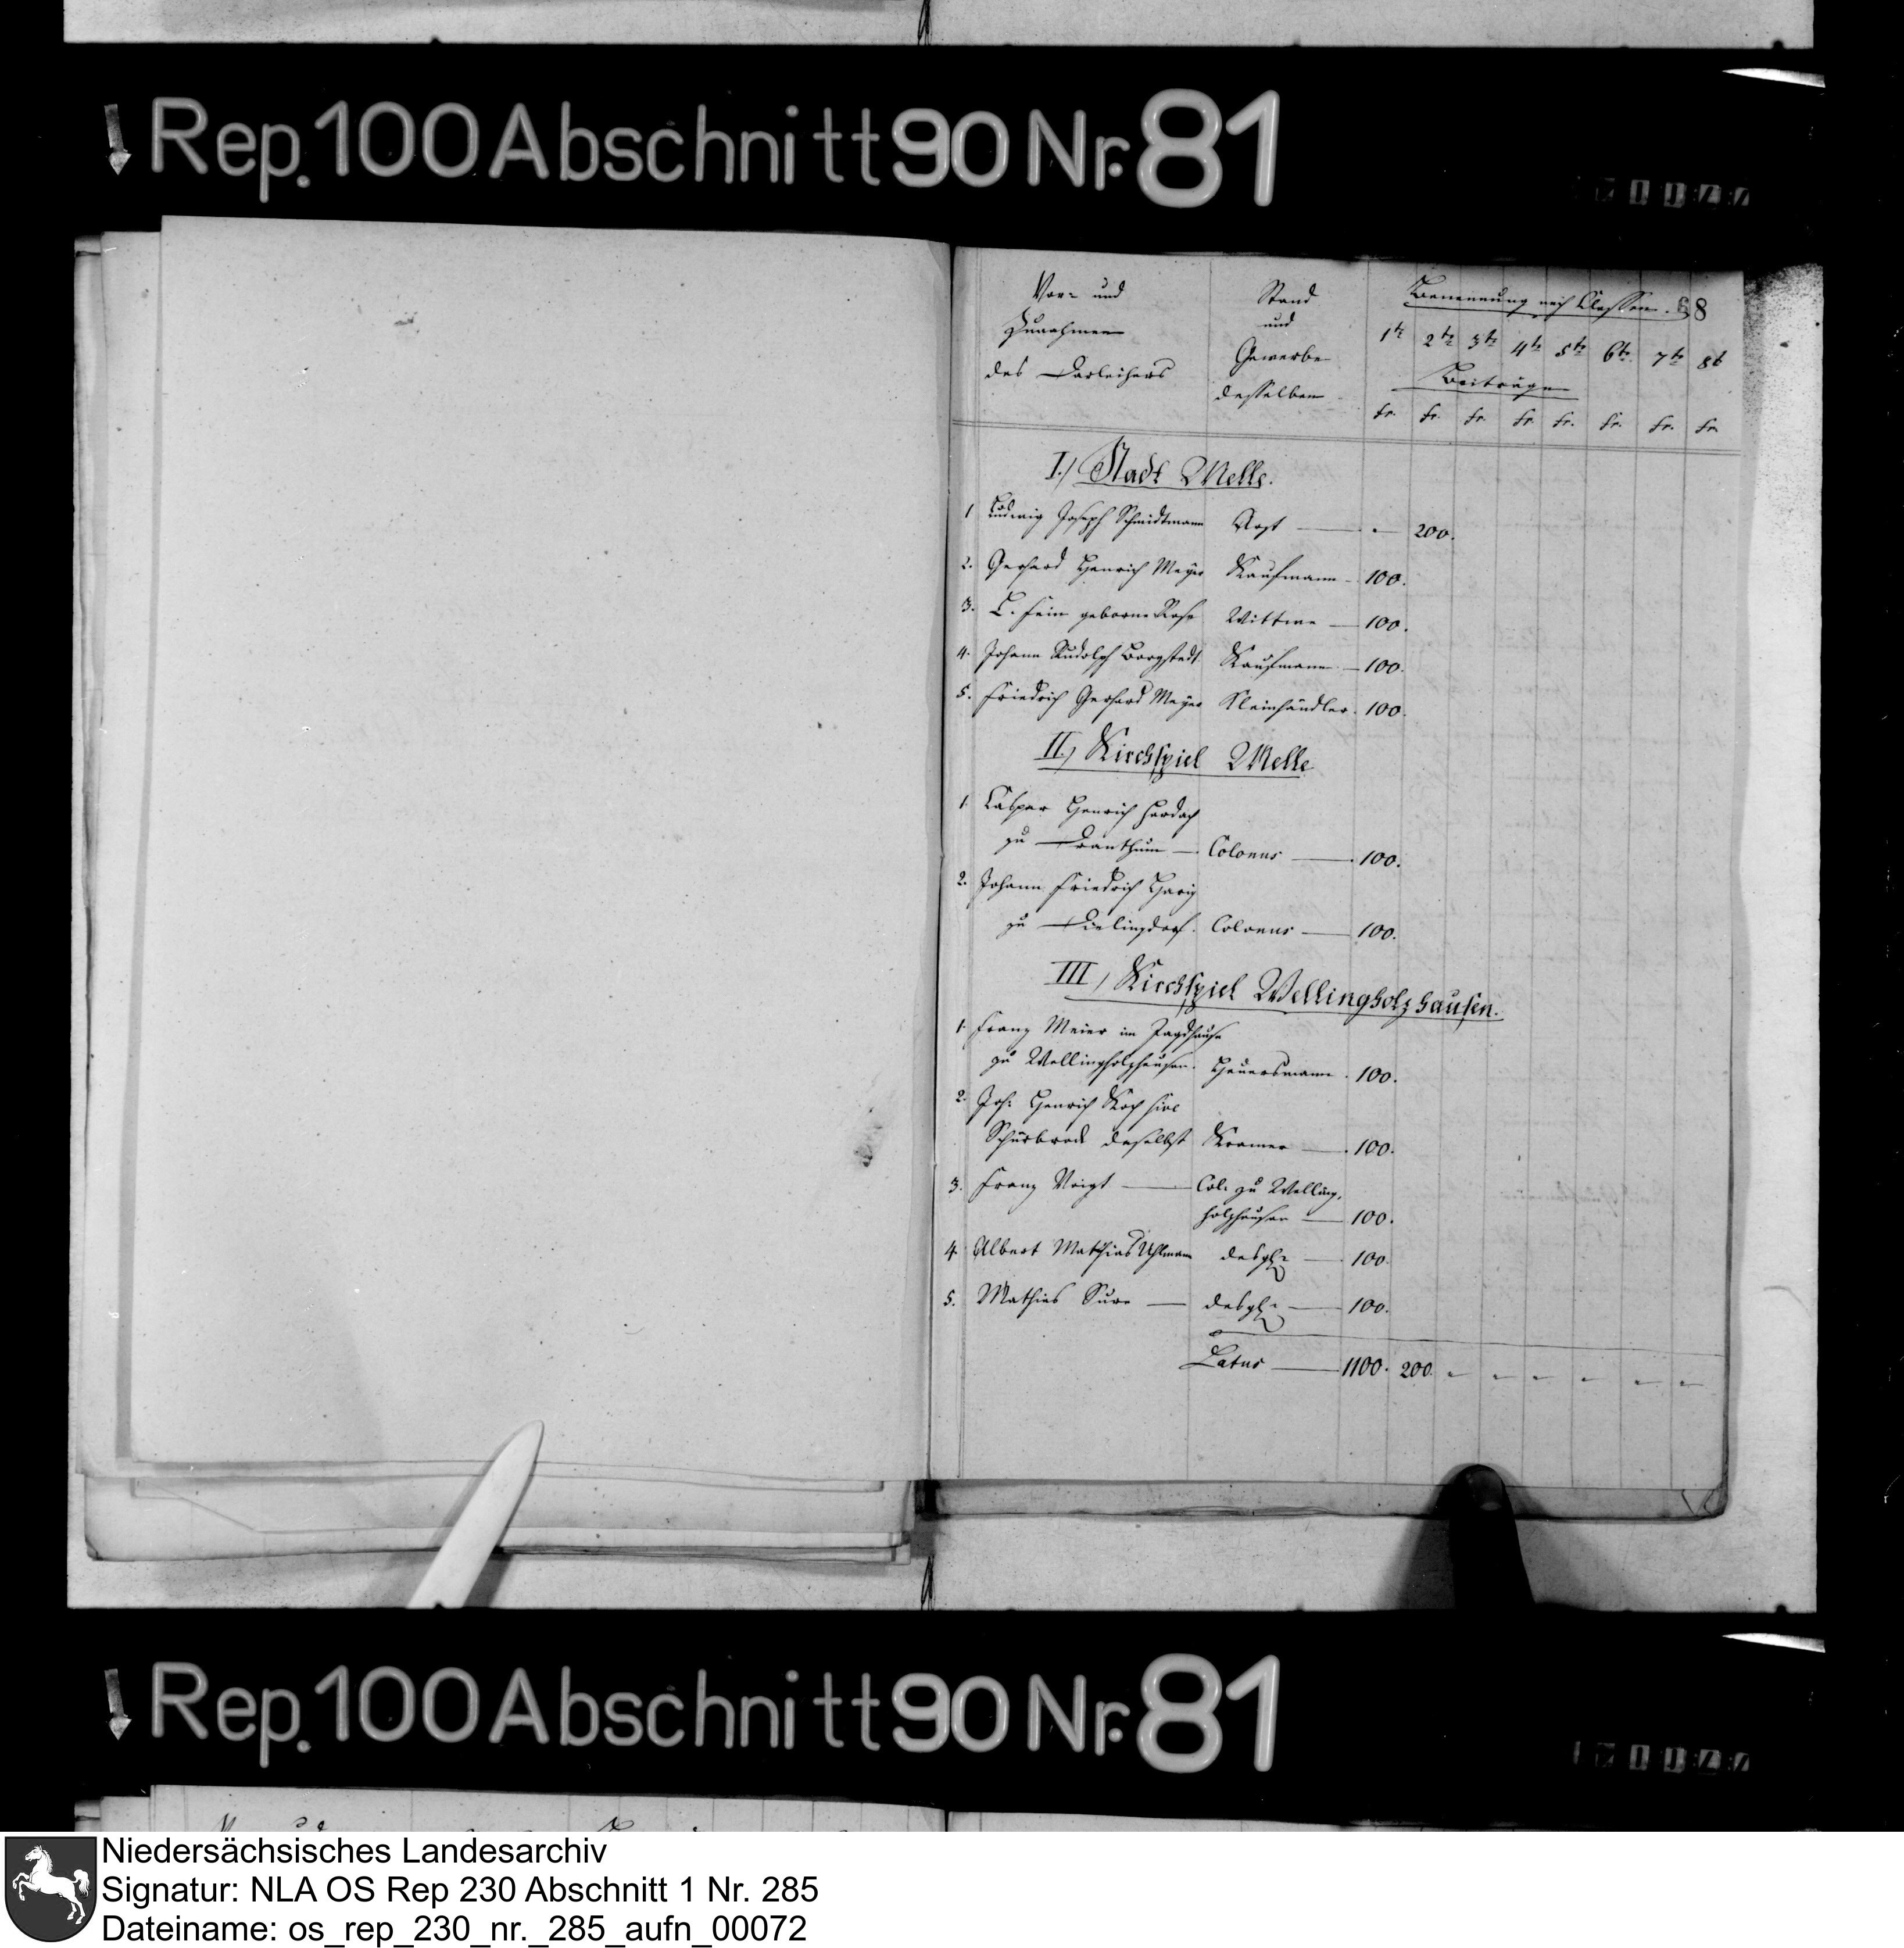 Rep. 100 Abschnitt 90 Nr. 81
Vor- und
Zunahmen
des Darleihers
Stand
und
Gewerbe
desselben
Benennung nach Classen. 68
1te 2te 3te 4te 5te 6te 7te 8t
Beiträge
Fr. Fr. Fr. Fr. Fr. Fr. Fr. Fr.
I.) Stadt Melle.
1 Ludwig Joseph Schmidtmann Arzt — 200.
2. Gerhard Henrich Meyer Kaufmann — 100.
3. geborne Wittwe — 100.
4. Johann Rudolph Borgstedt Kaufmann — 100.
5. Friedrich Gerhard Meyer Kleinhändler. 100.
II.) Kirchspiel Melle
1. Caspar Henrich Hardach
zu Dranthum — Colonus — 100.
2. Johann Friedrich Harig
zu Dielingdorf. Colonus — 100.
III.) Kirchspiel Wellingholzhausen.
1. Franz Meier im Jagdhause
zu Wellingholzhausen. Heuersmann. 100.
2. Joh: Henrich Koch sive
Schürbrock daselbst Kramer — 100.
3. Franz Voigt — Col. zu Welling,
holzhausen — 100.
4. Albert Mathias Uhlmann desgl: — 100.
5. Mathias desgl: — 100.
Latus — 1100. 200. " " " " " "
Rep. 100 Abschnitt 90 Nr. 81
Niedersächsisches Landesarchiv
Signatur: NLA OS Rep 230 Abschnitt 1 Nr. 285
Dateiname: os_rep_230_nr._285_aufn_00072